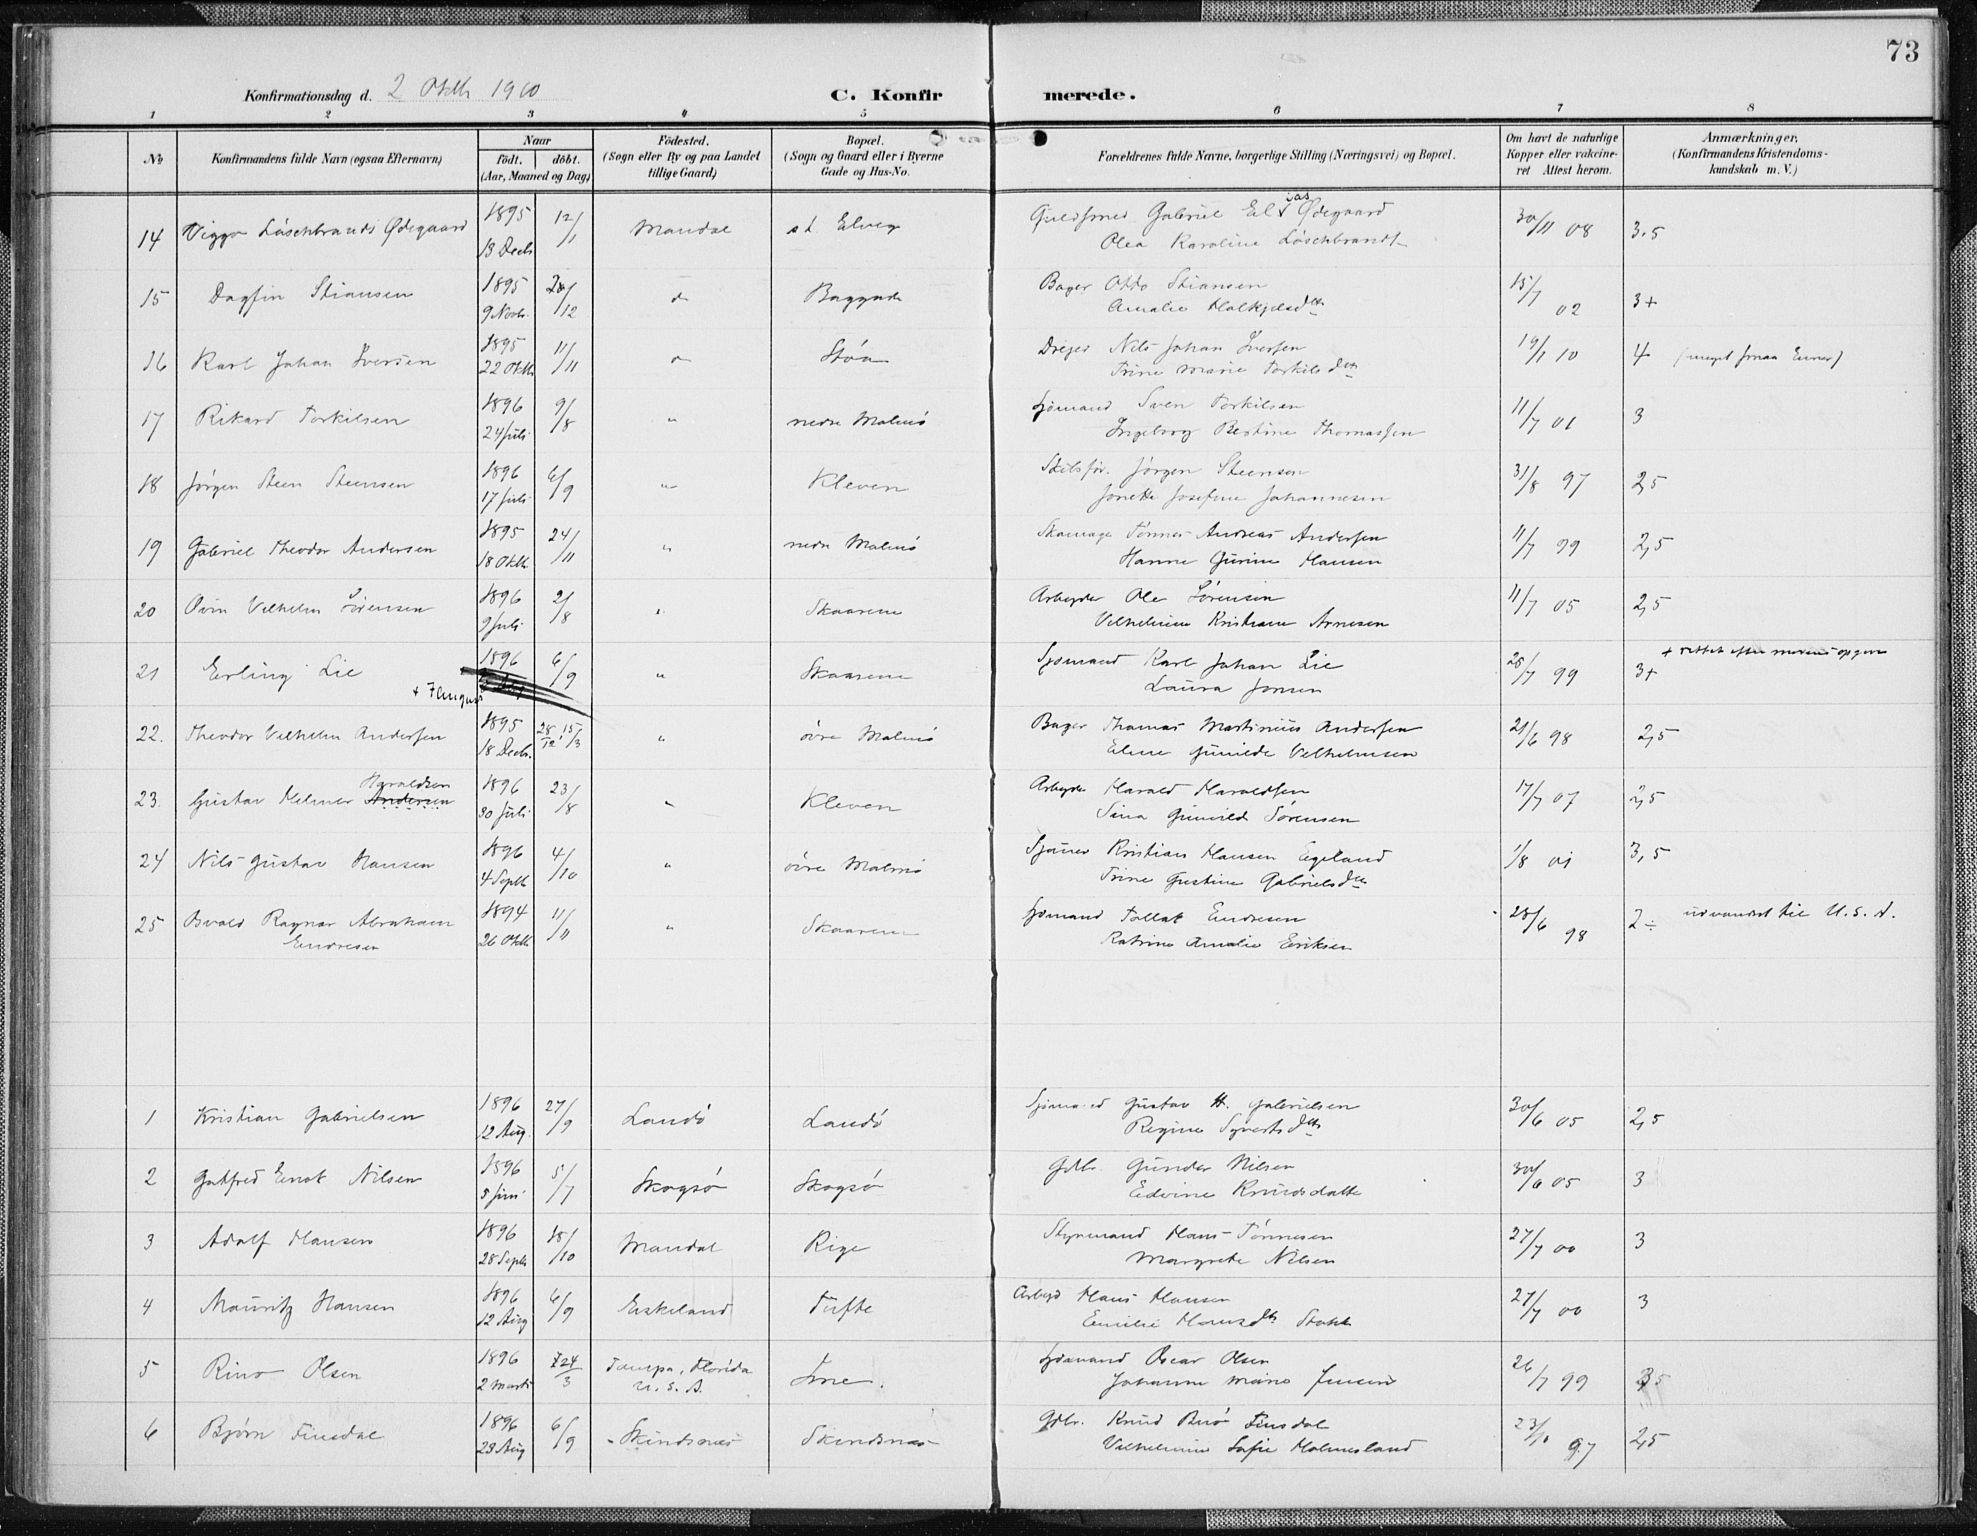 73
Konfirmationsdag d. 2 Oktb 1910
C. Konfirmerede.
1 2 3 4 5 6 7 8
No
Konfirmandens fulde Navn (ogsaa Efternavn)
Naar
født. døbt.
(Aar, Maaned og Dag)
Fødested.
(Sogn eller By og paa Landet
tillige Gaard)
Bopæl.
(Sogn og Gaard eller i Byerne
Gade og Hus-No.
Forældrenes fulde Navne, borgerlige Stilling (Næringsvei) og Bopæl.
Om havt de naturlige
Kopper eller vakcine-
ret Attest herom.
Anmærkninger.
(Konfirmandens Kristendoms-
kundskab m. V.)
14 Viggo Löschbrandt Ødegaard 1895 12/1 Mandal st. Elveg Guldsmed Gabriel Elias Ødegaard 30/11 08 3,5
13 Decb Olea Karoline Löschbrandt
15 Dagfin Stiansen 1895 26/12 do Baggade Bager Otto Stiansen 15/7 02 3+
9 Novb. Amalie
16 Karl Johan Iversen 1895 11/11 do Støa Dreier Nils Johan Iversen 19/1 10 4
22 Oktb Trine Marie Torkilsdtr
17 Rikard Torkilsen 1896 9/8 " nedre Malmö Sjömand Sven Torkilsen 11/7 01 3
24 Juli Ingeborg Bertine Thomassen
18 Jørgen Steen Steensen 1896 6/9 " Kleven Skibsför. Jørgen Steensen 31/8 97 2,5
17 Juli Jonette Josefine Johannesen
19 Gabriel Theodor Andersen 1895 24/11 " nedre Malmö Tønnes Andreas Andersen 11/7 99 2,5
18 Oktb. Hanne Gurine Hansen
20 Øvin Vilhelm Sörensen 1896 2/8 " Skaarene Arbeyder Ole Sörensen 11/7 05 2,5
9 Juli Vilhelmine Kristiane Arnesen
21 Erling Lie 1896 6/9 " Skaarene Sjømand Karl Johan Lie 28/7 99 3+ + rettet efter opgave
+ 7 August Laura Jensen
22. Theodor Vilhelm Andersen 1895 28/12: 15/3 " övre Malmö Bager Thomas Martinius Andersen 21/6 98 2,5
18 Decb. Eline Gunilde Vilhelmsen
23. Gustav Helmer Andersen Haraldsen 1896 23/8 " Kleven Arbeyder Harald Haraldsen 17/7 07 2,5
30 Juli Sina Gunvild Sörensen
24 Nils Gustav Hansen 1896 4/10 " övre Malmö Kristian Hansen Egeland 1/8 01 3,5
4 Septb Trine Gustine Gabrielsdtr
25 Osvald Ragnar Abraham 1894 11/11 " Skaarene Sjømand Tallak Endresen 28/6 98 2÷ udvandret til U.S.A.
Endresen 26 Oktb Katrine Amalie Eriksen
1 Kristian Gabrielsen 1896 27/9 Landö Landö Sjömand Gustav H. Gabrielsen 30/6 05 2,5
12 Aug. Regine Syvertsdtr
2 Gotfred Enok Nilsen 1896 5/7 Skogsø Skogsø Gdbr. Gunder Nilsen 30/6 05 3
5 Juni Edvine Knudsdatter
3 Adolf Hansen 1896 18/10 Mandal Rige Styrmand Hans Tönnesen 27/7 00 3
28 Septb Margrete Nilsen
4 Mauritz Hansen 1896 6/9 Eskeland Tufte Arbeyd Hans Hansen 27/7 00 3
12 Aug Emilie Hansdtr
5 Rino Olsen 1896 24/3 Tampa, Florida Ime. Sjømand Oscar Olsen 26/7 99 3,5
2 Marts U.S.A. Johanne Marie Jensen
6 Bjørn Finsdal 1896 6/9 Skindsnæs Skindsnæs Gdbr. Knud Finsdal 23/10 97 2,5
23 Aug Vilhelmine Sofie Holmesland